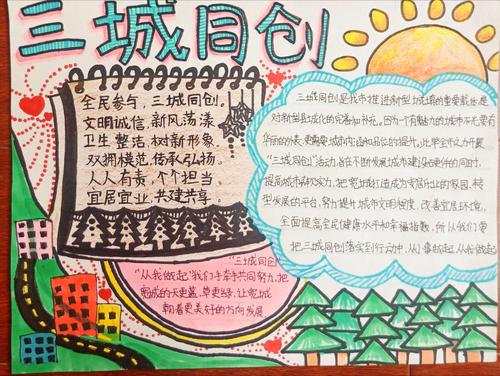 三城同创
全民参与，三城同创。
文明诚信，新风荡漾
卫生整洁，树新形象
双拥模范，传承弘扬
人人有责，个个担当
宜居宜业，共建共享。
三城同创是我市推进新型城镇的重要载体，是
对新型县域化的完善和补充。因为一个有魅力的城市不光要有
华丽的外表，更需要城市生活和品位的提升，此举全市上下开展
"三城同创"活动，旨在不断发展城市建设硬件的同时，
提高城市品和实力，把 城我们造成为安居乐业的家园、转
型发展的平台，努力提升城市文明程度，改善宜居环境，
全面提高全民健康水平和幸福指数，所以我们要
把三城同创落实到行动中，从小事做起，从我做起
"三城同创
"从我做起"我们手牵手共同努力，把
城的天更蓝，草更绿，让 城
朝着更美好的方向发展